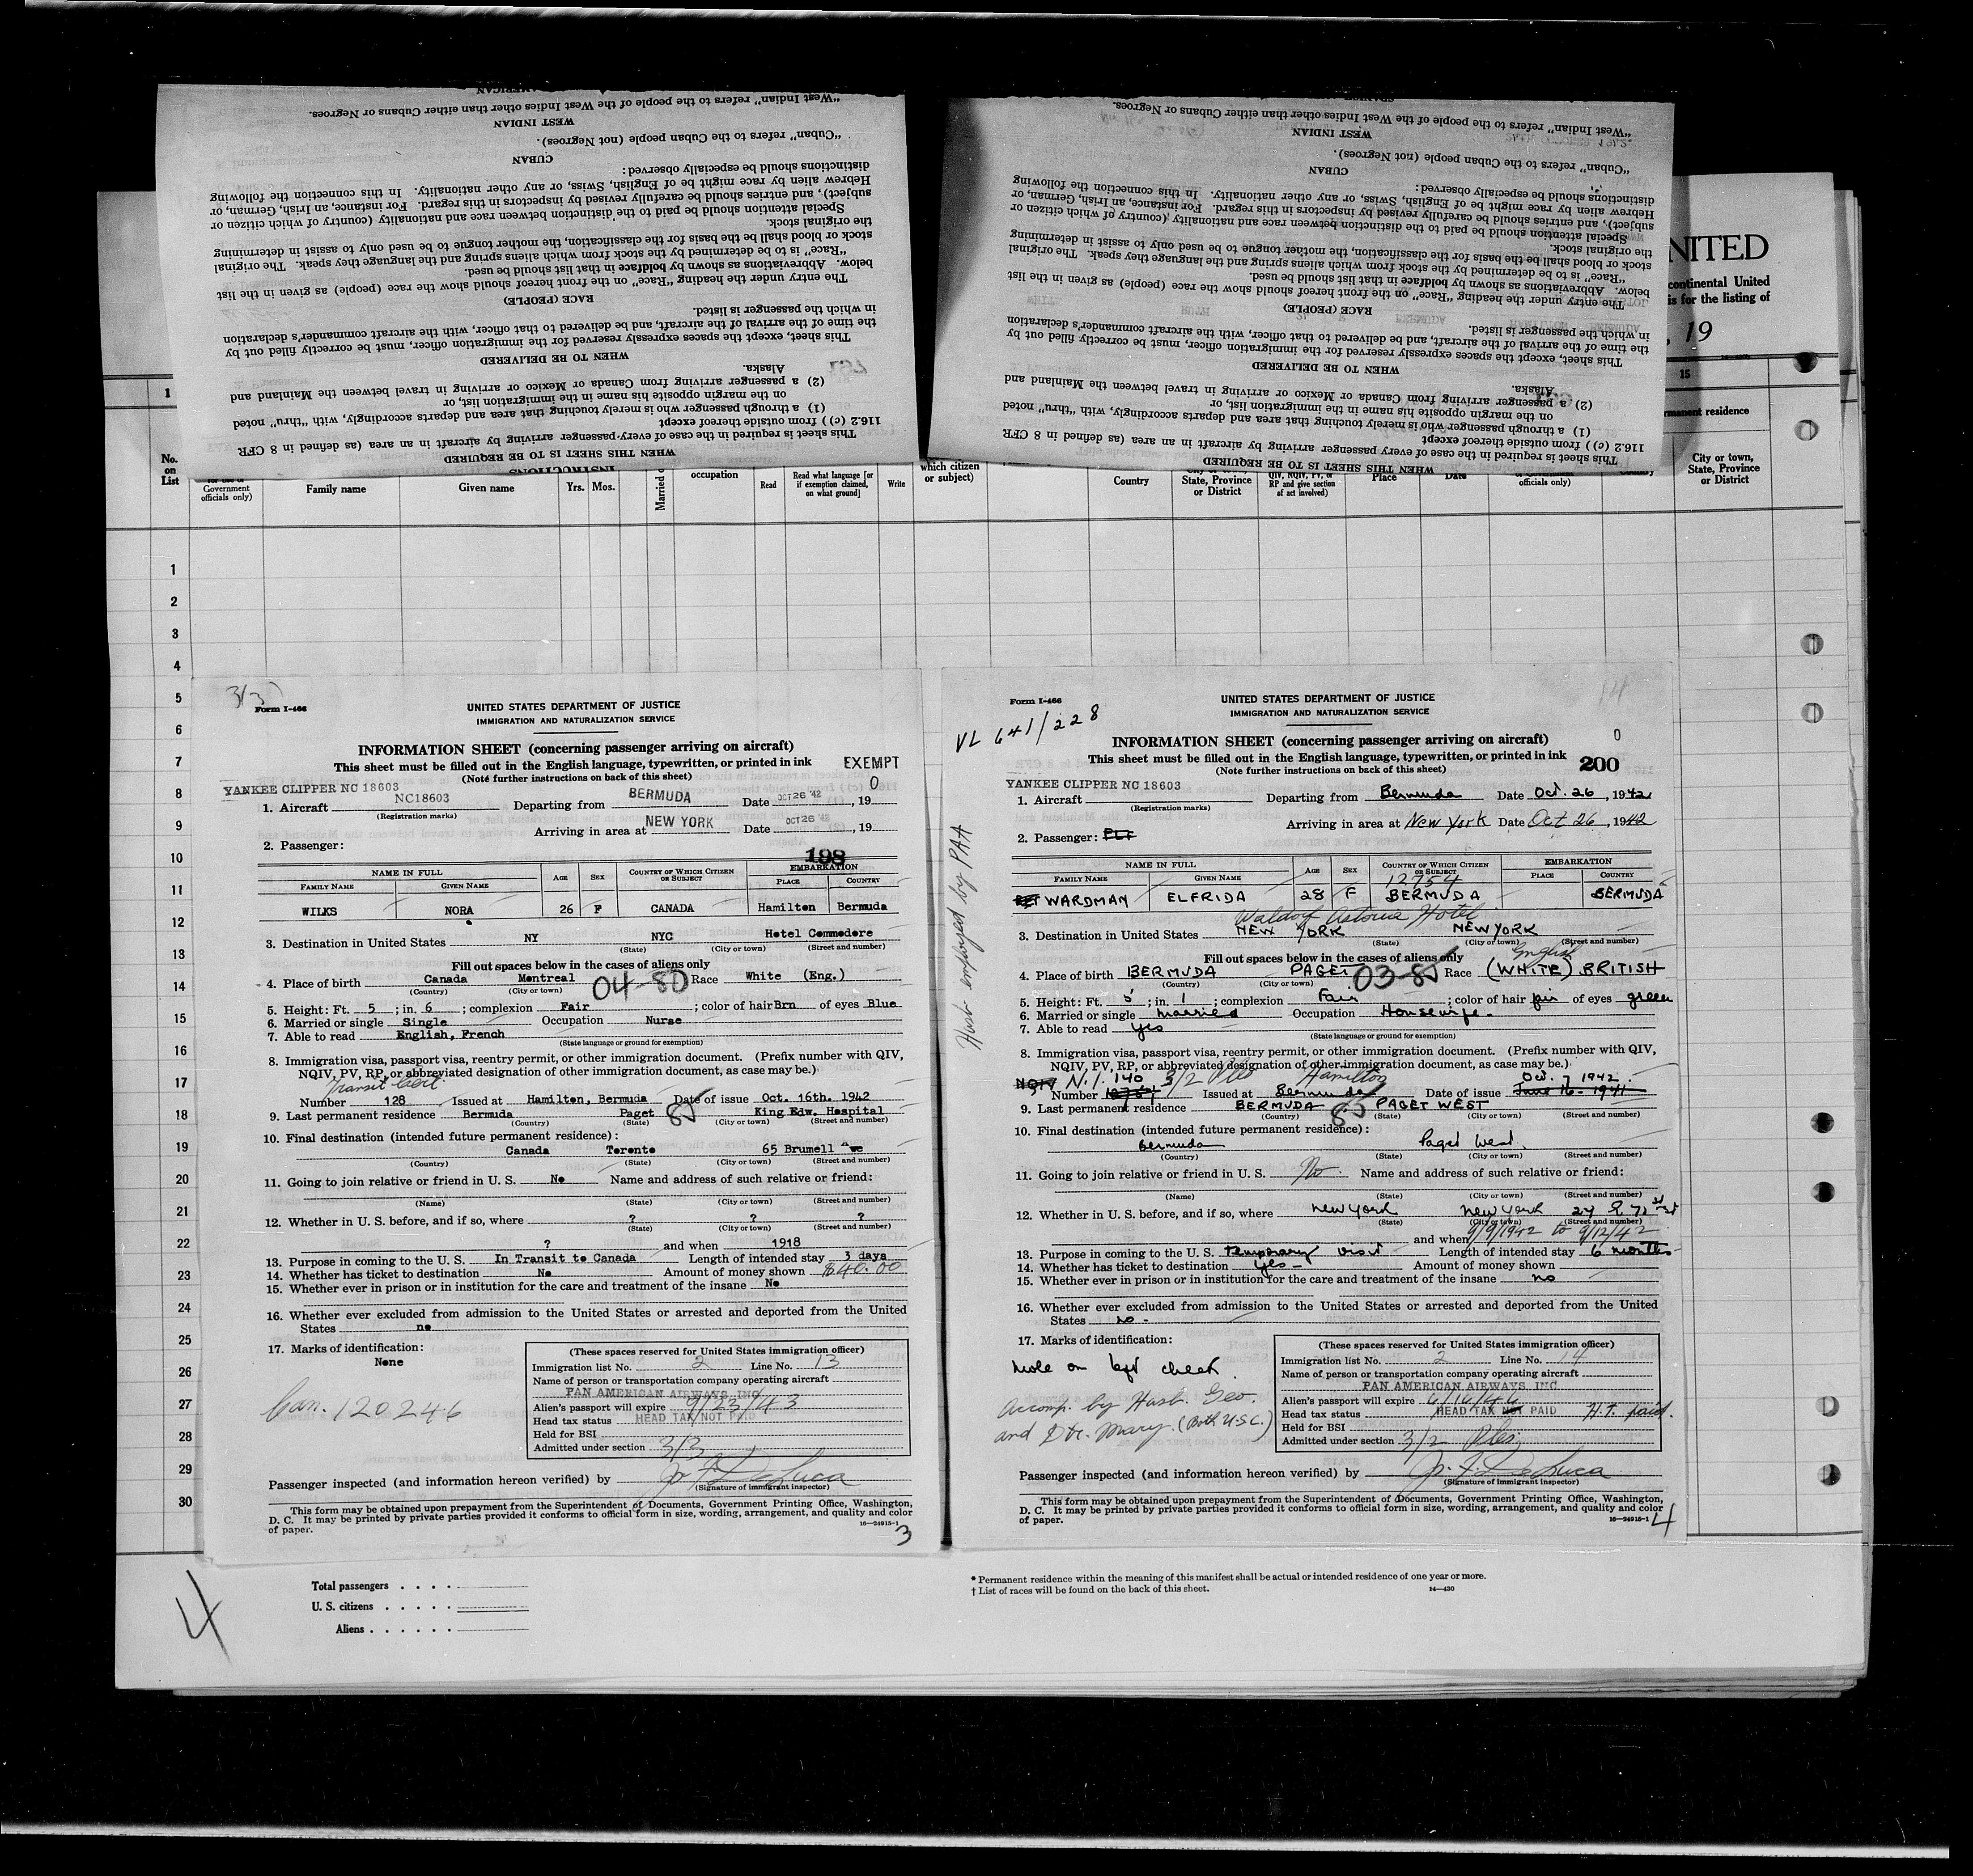 "West Indian" refers to the people of the West Indies other than either Cubans or Negroes.
WEST INDIAN
"Cuban" refers to the Cuban people (not Negroes).
CUBAN
distinctions should be especially observed:
Hebrew alien by race might be of English, Swiss, or any other nationality. In this connection the following
subject), and entries should be carefully revised by inspectors in this regard. For instance, an Irish, German, or
Special attention should be paid to the distinction between race and nationality (country of which citizen or
the original stock.
stock or blood shall be the basis for the classification, the mother tongue to be used only to assist in determining
"Race" is to be determined by the stock from which aliens spring and the language they speak. The original
below. Abbreviations as shown by boldface in that list should be used.
The entry under the heading "Race" on the front hereof should show the race (people) as given in the list
RACE (PEOPLE)
in which the passenger is listed.
the time of the arrival of the aircraft, and be delivered to that officer, with the aircraft commander's declaration
This sheet, except the spaces expressly reserved for the immigration officer, must be correctly filled out by
WHEN TO BE DELIVERED
Alaska.
(2) a passenger arriving from Canada or Mexico or arriving in travel between the Mainland and
on the margin opposite his name in the immigration list, or
(1) a through passenger who is merely touching that area and departs accordingly, with "thru" noted
116.2 (c)) from outside thereof except
This sheet is required in the case of every passenger arriving by aircraft in an area (as defined in 8 CFR
WHEN THIS SHEET IS TO BE REQUIRED
INSTRUCTIONS
"West Indian" refers to the people of the West Indies other than either Cubans or Negroes.
WEST INDIAN
"Cuban" refers to the Cuban people (not Negroes).
CUBAN
distinctions should be especially observed:
Hebrew alien by race might be of English, Swiss, or any other nationality. In this connection the following
subject), and entries should be carefully revised by inspectors in this regard. For instance, an Irish, German, or
Special attention should be paid to the distinction between race and nationality (country of which citizen or
the original stock.
stock or blood shall be the basis for the classification, the mother tongue to be used only to assist in determining
"Race" is to be determined by the stock from which aliens spring and the language they speak. The original
below. Abbreviations as shown by boldface in that list should be used.
The entry under the heading "Race" on the front hereof should show the race (people) as given in the list
RACE (PEOPLE)
in which the passenger is listed.
the time of the arrival of the aircraft, and be delivered to that officer, with the aircraft commander's declaration
This sheet, except the spaces expressly reserved for the immigration officer, must be correctly filled out by
WHEN TO BE DELIVERED
Alaska.
(2) a passenger arriving from Canada or Mexico or arriving in travel between the Mainland and
on the margin opposite his name in the immigration list, or
(1) a through passenger who is merely touching that area and departs accordingly, with "thru" noted
116.2 (c)) from outside thereof except
This sheet is required in the case of every passenger arriving by aircraft in an area (as defined in 8 CFR
WHEN THIS SHEET IS TO BE REQUIRED
NITED
continental United
is for the listing of
, 19
1
15
manent residence
No. on List
Government officials only)
Family name
Given name
Yrs. Mos.
Married
occupation
Read
Read what language [or if exemption claimed, on what ground]
Write
which citizen or subject)
Country
State, Province or District
NQIV, PV, or RP and give section of act involved)
Place
Date
officials only)
City or town, State, Province or District
1
2
3
4
5
6
7
8
9
10
11
12
13
14
15
16
17
18
19
20
21
22
23
24
25
26
27
28
29
30
3(3)
Form I-466
UNITED STATES DEPARTMENT OF JUSTICE
IMMIGRATION AND NATURALIZATION SERVICE
INFORMATION SHEET (concerning passenger arriving on aircraft)
This sheet must be filled out in the English language, typewritten, or printed in ink
(Note further instructions on back of this sheet)
EXEMPT
0
YANKEE CLIPPER NC 18603
1. Aircraft NC18603 Departing from BERMUDA Date OCT 26 '42, 19
(Registration marks)
Arriving in area at NEW YORK Date OCT 26 '42, 19
2. Passenger:
198
NAME IN FULL AGE SEX COUNTRY OF WHICH CITIZEN OR SUBJECT EMBARKATION
FAMILY NAME GIVEN NAME PLACE COUNTRY
WILKS NORA 26 F CANADA Hamilton Bermuda
3. Destination in United States NY NYC Hotel Commodore
(State) (City or town) (Street and number)
Fill out spaces below in the cases of aliens only
4. Place of birth Canada Montreal 04-80 Race White (Eng.)
(Country) (City or town)
5. Height: Ft. 5 ; in. 6 ; complexion Fair ; color of hair Brn of eyes Blue
6. Married or single Single Occupation Nurse
7. Able to read English, French
(State language or ground for exemption)
8. Immigration visa, passport visa, reentry permit, or other immigration document. (Prefix number with QIV,
NQIV, PV, RP, or abbreviated designation of other immigration document, as case may be.)
Transit Cert.
Number 128 Issued at Hamilton, Bermuda Date of issue Oct. 16th. 1942
9. Last permanent residence Bermuda Paget 85 King Edw. Hospital
(Country) (State) (City or town) (Street and number)
10. Final destination (intended future permanent residence):
Canada Toronto 65 Brumell Ave
(Country) (State) (City or town) (Street and number)
11. Going to join relative or friend in U. S. No Name and address of such relative or friend:
(Name) (State) (City or town) (Street and number)
12. Whether in U. S. before, and if so, where ? ? ?
(State) (City or town) (Street and number)
? and when 1918
13. Purpose in coming to the U. S. In Transit to Canada Length of intended stay 3 days
14. Whether has ticket to destination No Amount of money shown $40.00
15. Whether ever in prison or in institution for the care and treatment of the insane No
16. Whether ever excluded from admission to the United States or arrested and deported from the United
States no
17. Marks of identification:
None
Can. 120246
(These spaces reserved for United States immigration officer)
Immigration list No. 2 Line No. 13
Name of person or transportation company operating aircraft
PAN AMERICAN AIRWAYS, INC
Alien's passport will expire 9/23/43
Head tax status HEAD TAX NOT PAID
Held for BSI
Admitted under section 3/3
Passenger inspected (and information hereon verified) by Jr. F. De Luca
(Signature of immigrant inspector)
This form may be obtained upon prepayment from the Superintendent of Documents, Government Printing Office, Washington,
D. C. It may be printed by private parties provided it conforms to official form in size, wording, arrangement, and quality and color
of paper.
16—24915-1
3
14
Form I-466
VL 641/228
UNITED STATES DEPARTMENT OF JUSTICE
IMMIGRATION AND NATURALIZATION SERVICE
INFORMATION SHEET (concerning passenger arriving on aircraft)
This sheet must be filled out in the English language, typewritten, or printed in ink
(Note further instructions on back of this sheet)
0
200
Husb employed by PAA
YANKEE CLIPPER NC 18603
1. Aircraft Departing from Bermuda Date Oct. 26, 1942
(Registration marks)
Arriving in area at New York Date Oct 26, 1942
2. Passenger:
NAME IN FULL AGE SEX COUNTRY OF WHICH CITIZEN OR SUBJECT EMBARKATION
FAMILY NAME GIVEN NAME PLACE COUNTRY
12754
WARDMAN ELFRIDA 28 F BERMUDA BERMUDA
Waldorf Astoria Hotel
3. Destination in United States NEW YORK NEW YORK
(State) (City or town) (Street and number)
Fill out spaces below in the cases of aliens only
English
4. Place of birth BERMUDA PAGET 03-85 Race (WHITE) BRITISH
(Country) (City or town)
5. Height: Ft. 5 ; in. 1 ; complexion Fair ; color of hair fair of eyes green
6. Married or single married Occupation Housewife.
7. Able to read yes
(State language or ground for exemption)
8. Immigration visa, passport visa, reentry permit, or other immigration document. (Prefix number with QIV,
NQIV, PV, RP, or abbreviated designation of other immigration document, as case may be.)
NQIV N.I. 140 3/2 Hamilton Oct. 7 1942
Number Issued at Bermuda Date of issue June 16-1941
9. Last permanent residence BERMUDA 85 PAGET WEST
(Country) (State) (City or town) (Street and number)
10. Final destination (intended future permanent residence):
Bermuda Paget West.
(Country) (State) (City or town) (Street and number)
11. Going to join relative or friend in U. S. No Name and address of such relative or friend:
(Name) (State) (City or town) (Street and number)
12. Whether in U. S. before, and if so, where New York New York 24 E 72nd St
(State) (City or town) (Street and number)
and when 9/9/1942 to 9/12/42
13. Purpose in coming to the U. S. temporary visit Length of intended stay 6 months
14. Whether has ticket to destination yes Amount of money shown
15. Whether ever in prison or in institution for the care and treatment of the insane no
16. Whether ever excluded from admission to the United States or arrested and deported from the United
States no
17. Marks of identification:
Mole on left cheek.
Accomp. by Husb. Geo.
and Dtr. Mary. (Both U.S.C.)
(These spaces reserved for United States immigration officer)
Immigration list No. 2 Line No. 14
Name of person or transportation company operating aircraft
PAN AMERICAN AIRWAYS, INC
Alien's passport will expire 6/16/46
Head tax status HEAD TAX NOT PAID H.T. paid.
Held for BSI
Admitted under section 3/2
Passenger inspected (and information hereon verified) by Jr. F. De Luca
(Signature of immigrant inspector)
This form may be obtained upon prepayment from the Superintendent of Documents, Government Printing Office, Washington,
D. C. It may be printed by private parties provided it conforms to official form in size, wording, arrangement, and quality and color
of paper.
16—24915-1
4
4
Total passengers
U. S. citizens
Aliens
* Permanent residence within the meaning of this manifest shall be actual or intended residence of one year or more.
† List of races will be found on the back of this sheet.
14—430